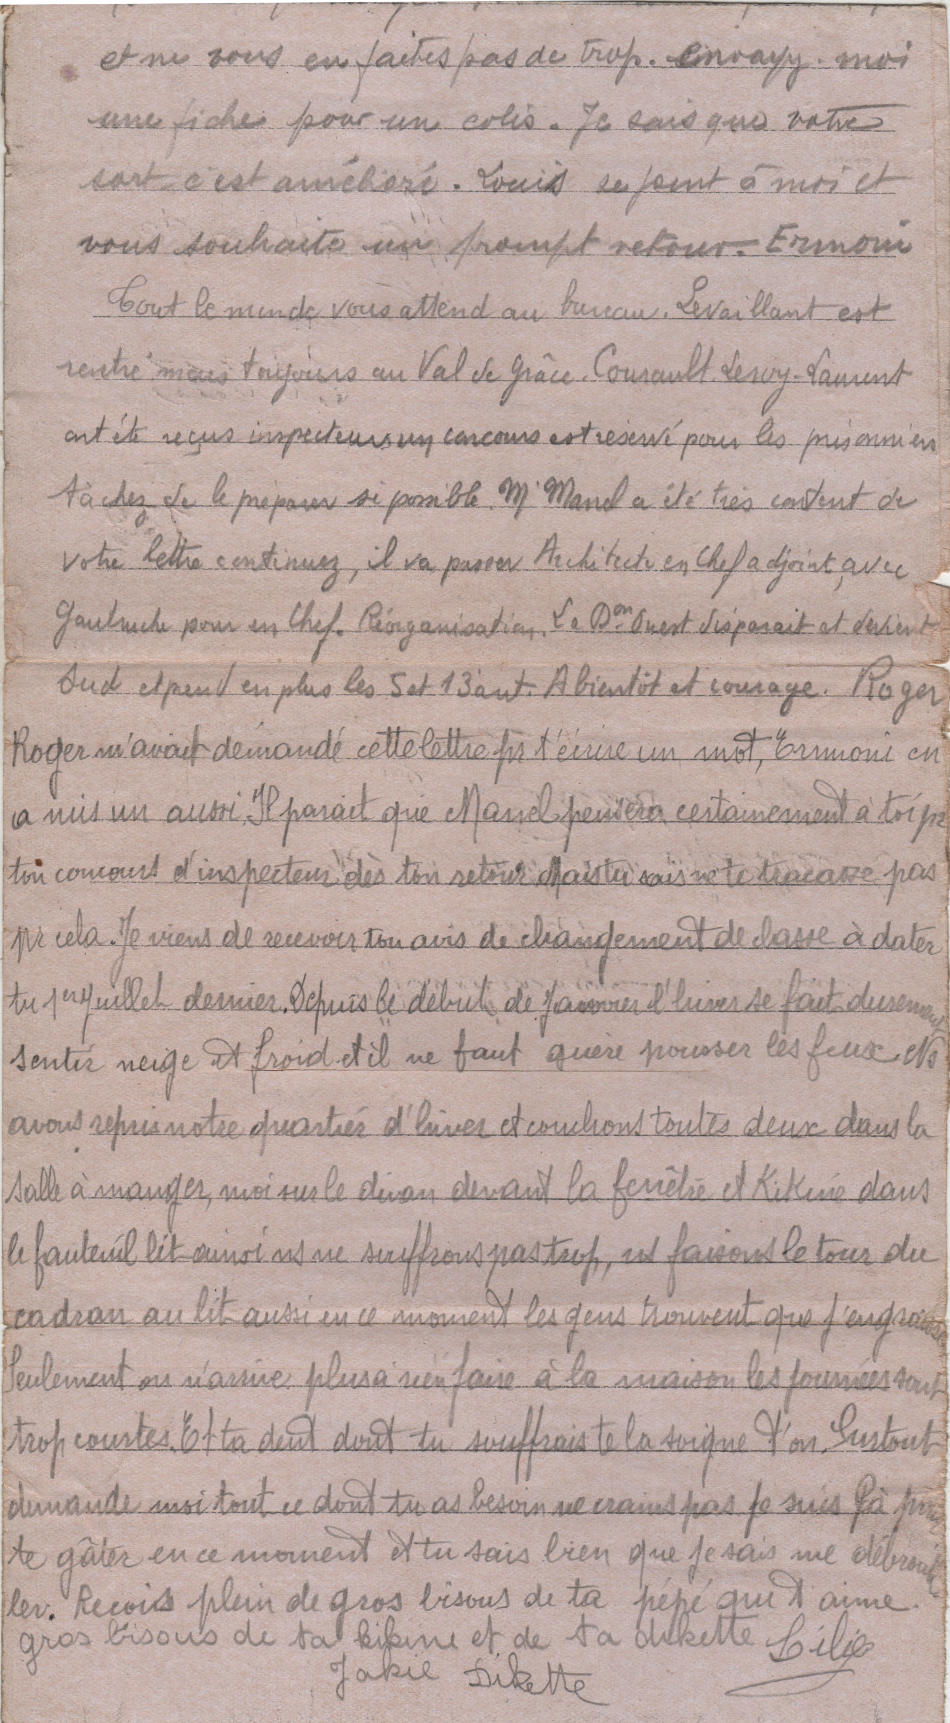 et ne vous en faites pas de trop. Envoyy. moi
une fiche pour un colis. Je sais que votre
sort c'est amélioré. Louis se joint à moi et
vous souhaite un prompt retour. Ermoni
Tout le monde vous attend au bureau. Levaillant est
rentré mais toujours au Val de Grâce. Leroy. Laurent
ont été reçus inspecteurs un concours est réservé pour les prisonniers
tâchez de le préparer si possible. Mr Manel a été très content de
votre lettre continuez, il va passer Architecte en Chef adjoint, avec
pour en Chef. Réorganisation. La Don Ouest disparait et devient
Sud et perd en plus les 5 et 13 ant. A bientôt et courage. Roger
Roger m'avait demandé cette lettre pr t'écrire un mot, Ermoni en
a mis un aussi. Il parait que Manel pensera certainement à toi pr
ton concours d'inspecteur dès ton retour Mais tu sais ne te tracasse pas
pr cela. Je viens de recevoir ton avis de changement de classe à dater
tu 1er Juillet dernier. Depuis le début de Janvier l'hiver se fait durement
sentir neige et froid et il ne faut guère pousser les feux. Ns
avons repris notre quartier d'hiver et couchons toutes deux dans la
salle à manger, moi sur le divan devant la fenêtre et Kikine dans
le fauteuil lit ainsi ns ne souffrons pas trop, ns faisons le tour du
cadran au lit aussi en ce moment les gens trouvent que j'engraisse
Seulement on n'arrive plus à rien faire à la maison les journées sont
trop courtes. Et ta dent dont tu souffrais te la soigne t'on. Surtout
demande moi tout ce dont tu as besoin ne crains pas je suis là pour
te gâter en ce moment et tu sais bien que je sais me débrouil
ler. Reçois plein de gros bisous de ta pépé qui t'aime.
gros bisous de ta kikine et de ta dikette Lilie
Jakie Dikette